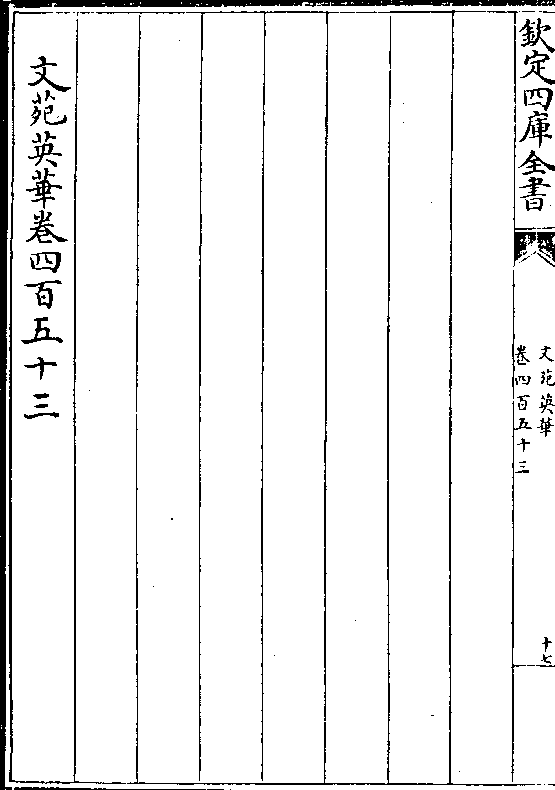 欽定四庫全書
文苑英華
卷四百五十三
十七
文苑英華卷四百五十三